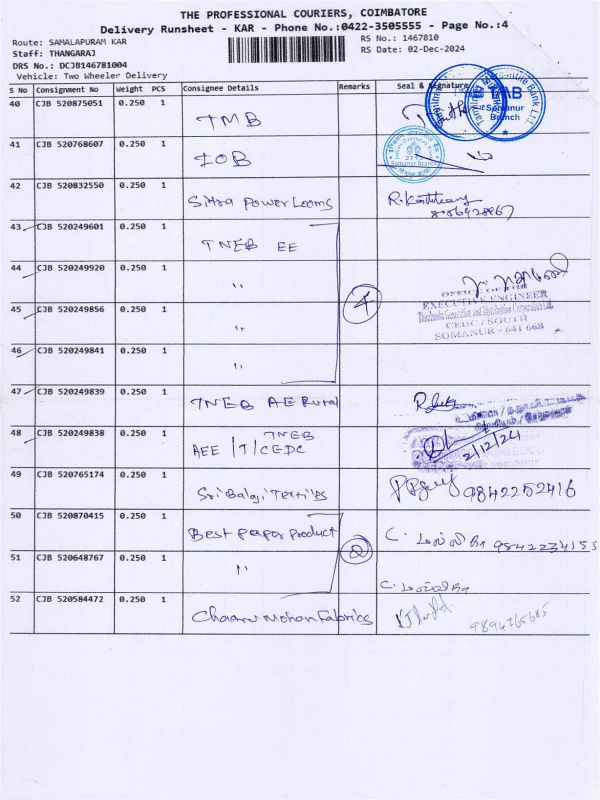 THE PROFESSIONAL COURIERS, COIMBATORE
Delivery Runsheet - KAR - Phone No.:0422-3505555 - Page No.:4
Route: SAMALAPURAM KAR
RS No.: 1467810
Staff: THANGARAJ
RS Date: 02-Dec-2024
DRS No.: DCJB146781004
Vehicle: Two Wheeler Delivery
S No Consignment No Weight PCS Consignee Details Remarks Seal & Signature
40 CJB 520875051 0.250 1 TMB
Somanur
Branch
41 CJB 520768607 0.250 1 IOB
42 CJB 520832550 0.250 1 Sitra Power Looms
43 CJB 520249601 0.250 1 TNEB EE
44 CJB 520249920 0.250 1 "
4
OFFICE OF THE
EXECUTIVE ENGINEER
CEDC / SOUTH
SOMANUR - 641 668
45 CJB 520249856 0.250 1 "
46 CJB 520249841 0.250 1 "
47 CJB 520249839 0.250 1 TNEB AE Rural
48 CJB 520249838 0.250 1 TNEB
AEE /T/CEDC
2/12/24
49 CJB 520765174 0.250 1 Sri Balaji Textiles 9842252416
50 CJB 520870415 0.250 1 Best paper product 2 9842234155
51 CJB 520648767 0.250 1 "
52 CJB 520584472 0.250 1 Mohan Fabrics 9894765685